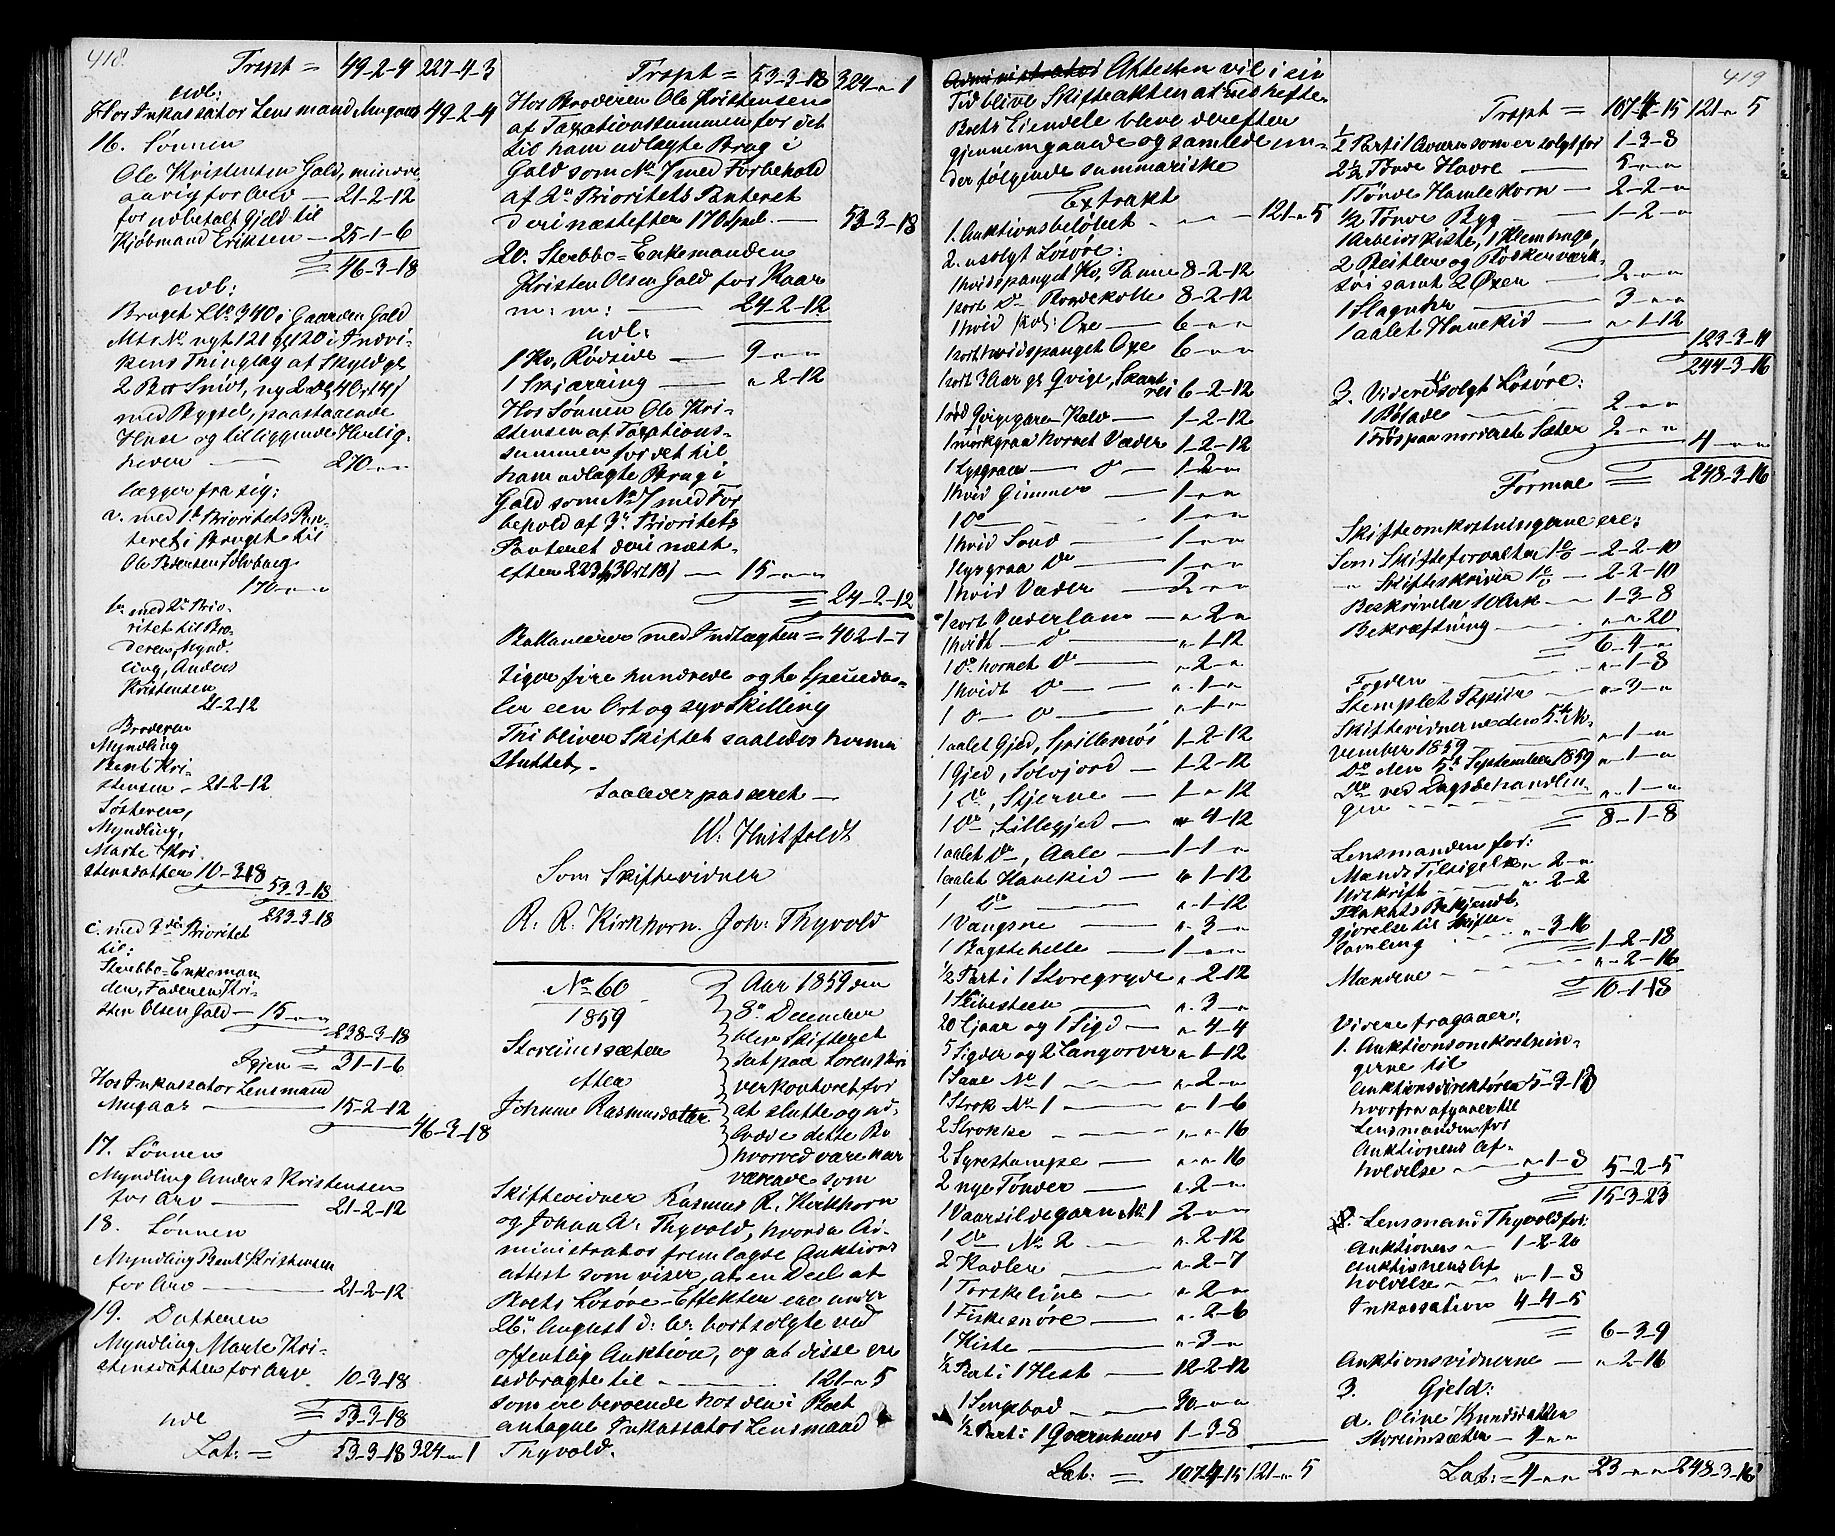 418
Trspt = 49-2-4 227-4-3
udl:
Hos Inkassator Lensmand Mugaas 49-2-4
16. Sønnen
Ole Kristensen Gald, mindre-
aarig for Arv — 21-2-12
for udbetalt Gjeld til
Kjøbmand Eriksen — 25-1-6
= 46-3-18
udl:
Bruget Lb: 340 i Gaarden Gald
Mts No nyt 121 gl 120 i Indvi-
kens Thinglag af Skyld gl
med Bygsel, paastaaende
Huse og tilliggende Herlig-
heder — 270 " "
lægger fra sig:
a. med 1ste Prioritets Pan-
teret i Bruget til
Ole Pedersen Solvberg
170 " "
b. med 2den Prio-
ritet til Bro-
deren, Mynd-
ling, Anders
Kristensen
21-2-12
Broderen
Myndling
Bent Kri-
stensen — 21-2-12
Søsteren,
Myndling,
Marte Kri-
stensdatter 10-3-18
53-3-18
223-3-18
c. med 3die Prioritet
til:
Sterbbo-Enkeman
den, Faderen Kri-
sten Olsen Gald — 15 " "
238-3-18
Igjen = 31-1-6
Hos Inkassator Lensmand
Mugaas — 15-2-12
46-3-18
17. Sønnen
Myndling Anders Kristensen
for Arv — 21-2-12
18. Sønnen
Myndling Bent Kristensen
for Arv — 21-2-12
19. Datteren
Myndling Marte Kri-
stensdatter for Arv 10-3-18
= 53-3-18
Lat: = 53-3-18 324 " 1
Trspt = 53-3-18 324 " 1
Hos Broderen Ole Kristensen
af Taxationssummen for det
til ham udlagte Brug i
Gald som No 7 med Forbehold
af 2den Prioritets Panteret
deri næstefter 170 Spd. — 53-3-18
20. Sterbbo-Enkemanden
Kristen Olsen Gald for Kaar
m: m: — 24-2-12
udl:
1 Ko, Rødside — 9 " "
1 Skjæring — " 2-12
Hos Sønnen Ole Kri-
stensen af Taxations-
summen for det til
ham udlagte Brug i
Gald som No 7 med For
behold af 3die Prioritets
Panteret deri næst-
efter 223 3 Ort 18 — 15 " "
= 24-2-12
Ballancerer med Indtægten = 402-1-7
siger fire hundrede og to Speciedaler
een Ort og syv Skilling
Thi bliver Skiftet saaledes herved
sluttet.
Saaledes passeret —
W. Huitfeldt
Som Skiftevidner
R. R. Kirkhorn. Joh: Thyvold
No 60
1859
Storeimssæteren
efter
Johanne Rasmusdatter
Aar 1859 den
8de December
blev Skifteret
sat paa Sorenskri
verkontoret for
at slutte og ud-
lodde dette Bo
hvorved vare nær
værende som
Skiftevidner Rasmus R. Kirkhorn
og Johan A. Thyvold, hvorda Ad-
ministrator fremlagde Auktions
attest som viser, at en Deel af
Boets Løsøre-Effekter ere under
26de August d: A: bortsolgte ved
offentlig Auktion, og at disse ere
udbragte til — 121 " 5
som ere beroende hos den i Boet
antagne Inkassator Lensmand
Thyvold.
Administrator Attesten vil i sin
Tid blive Skifteakten at vedhefte.
Boets Eiendele bleve derefter
gjennemgaaede og samlede un-
der følgende summariske
Extrakt
1. Auktionsbeløbet — 121 " 5
2. usolgt Løsøre:
1 hvidspanget Ko, Panne 8-2-12
1 sort Do Brandekolle 8-2-12
1 hvid kol: Oxe — 6 " "
1 sort hvidspanget Oxe 6 " "
1 sort 3 Aar gl Qvige, Skaut
rei 6-2-12
1 rød Qvigegaren Kalv — 1-2-12
1 mørkgraa hornet Væder 1-2-12
1 Lysgraa — do — 1-2 "
1 hvid Gimmer — 1 " "
1 do — 1 " "
1 hvid Soud — 1 " "
1 lysgraa Do — 1 " "
1 hvid Væder — 2 " "
1 sort Væderlam — " 2 "
1 hvidt — do — " 1-12
1 do hornet do — " 2 "
1 hvidt do — " 1 "
1 do — do — " 1 "
1 aalet Gjed, Spillemøi 1-2-12
1 Gjed, Sølvjord — 1-2-12
1 Do, Stjerne — 1 " 12
1 Do, Lillegjed — " 4-12
1 aalet Do, Aale — 1-1 "
1 aalet Havekid — " 1-12
1 Do — " 1-12
1 Vangsne — " 3 "
1 Bagstehelle — 1 " "
1/2 Part i 1 Storegryde " 2-12
1 Slibesteen — " 3 "
20 Ljaar og 1 Sigd — " 4-4
5 Sigder og 2 Langorver " 1-12
1 Saae No 1 — " 2 "
1 Strok No 1 — " 1-6
2 Strokke — " " 16
2 Syrestampe — " " 16
2 nye Tønder — " 2 "
1 Vaarsildegarn No 1 2 " "
1 Do No 2 — " 2-12
2 Kadler — " 2-7
1 Torskeline — " 2 "
1 Fiskesnøre — " 2-6
1 Kiste — " 3 "
1/2 Part i 1 Hest — 12-2-12
1 Sengebod — 30 " "
1/2 Part i 1 Qværnhuus 1-3-8
Lat: = 107-4-15 121 " 5
419
Trspt = 107-4-15 121 " 5
1/2 Part i 1 Qværn som er solgt for 1-3-8
2 1/2 Tønde Havre — 5 " "
1 Tønde Hamlekorn — 2-2 "
1/2 Tønde Byg — 1-2 "
1 Arbeidskiste, 1 Klembage,
2 Beitler og Bøskerværk-
tøi samt 2 Øxer — 2 " "
1 Slaguhr — 3 " "
1 aalet Havekid — " 1-12
123-3-11
244-3-16
3. Videre usolgt Løsøre:
1 Bólade — 2 " "
1 Fôs paa norderste Sæter 2 " "
4 " "
Formue = 248-3-16
Skifteomkostningerne ere:
Som Skifteforvalter 1 % — 2-2-10
" Skifteskriver 1 % — 2-2-10
Beskrivelse 10 Ark — 1-3-8
Bekræftning — " " 20
= 6-4 "
Fogden — " 1-8
Stemplet Papir — " 3 "
Skiftevidnerne den 5te No-
vember 1859 — " 1 "
Do den 5te September 1859 " 1 "
Do ved Dagsbehandlin-
gen — " 1 "
= 8-1-8
Lensmanden for:
Mands Tilsigelse " 2 "
Udskrift — " 2-2
Plakats Bekjendt-
gjørelse til Skifte-
samling — " 3-16
= 1-2-18
Mændene — " 2-16
= 10-1-18
Videre fragaaer:
1. Auktionsomkostnin-
gerne til
Auktionsdirektøren 5-3-13
hvorfra afgaaer til
Lensmanden for
Auktionens Af-
holdelse — " 1-8
5-2-5
= 15-3-23
2. Lensmand Thyvold for:
Auktionen — 1-2-20
Auktionens Af
holdelse — " 1-8
Inkassation 4-4-5
= 6-3-9
Auktionsvidnerne — " 2-16
3. Gjeld:
a. Oline Knudsdatter
Storeimsæter — 4 " "
Lat: = 4 " " 23 " " 248-3-16